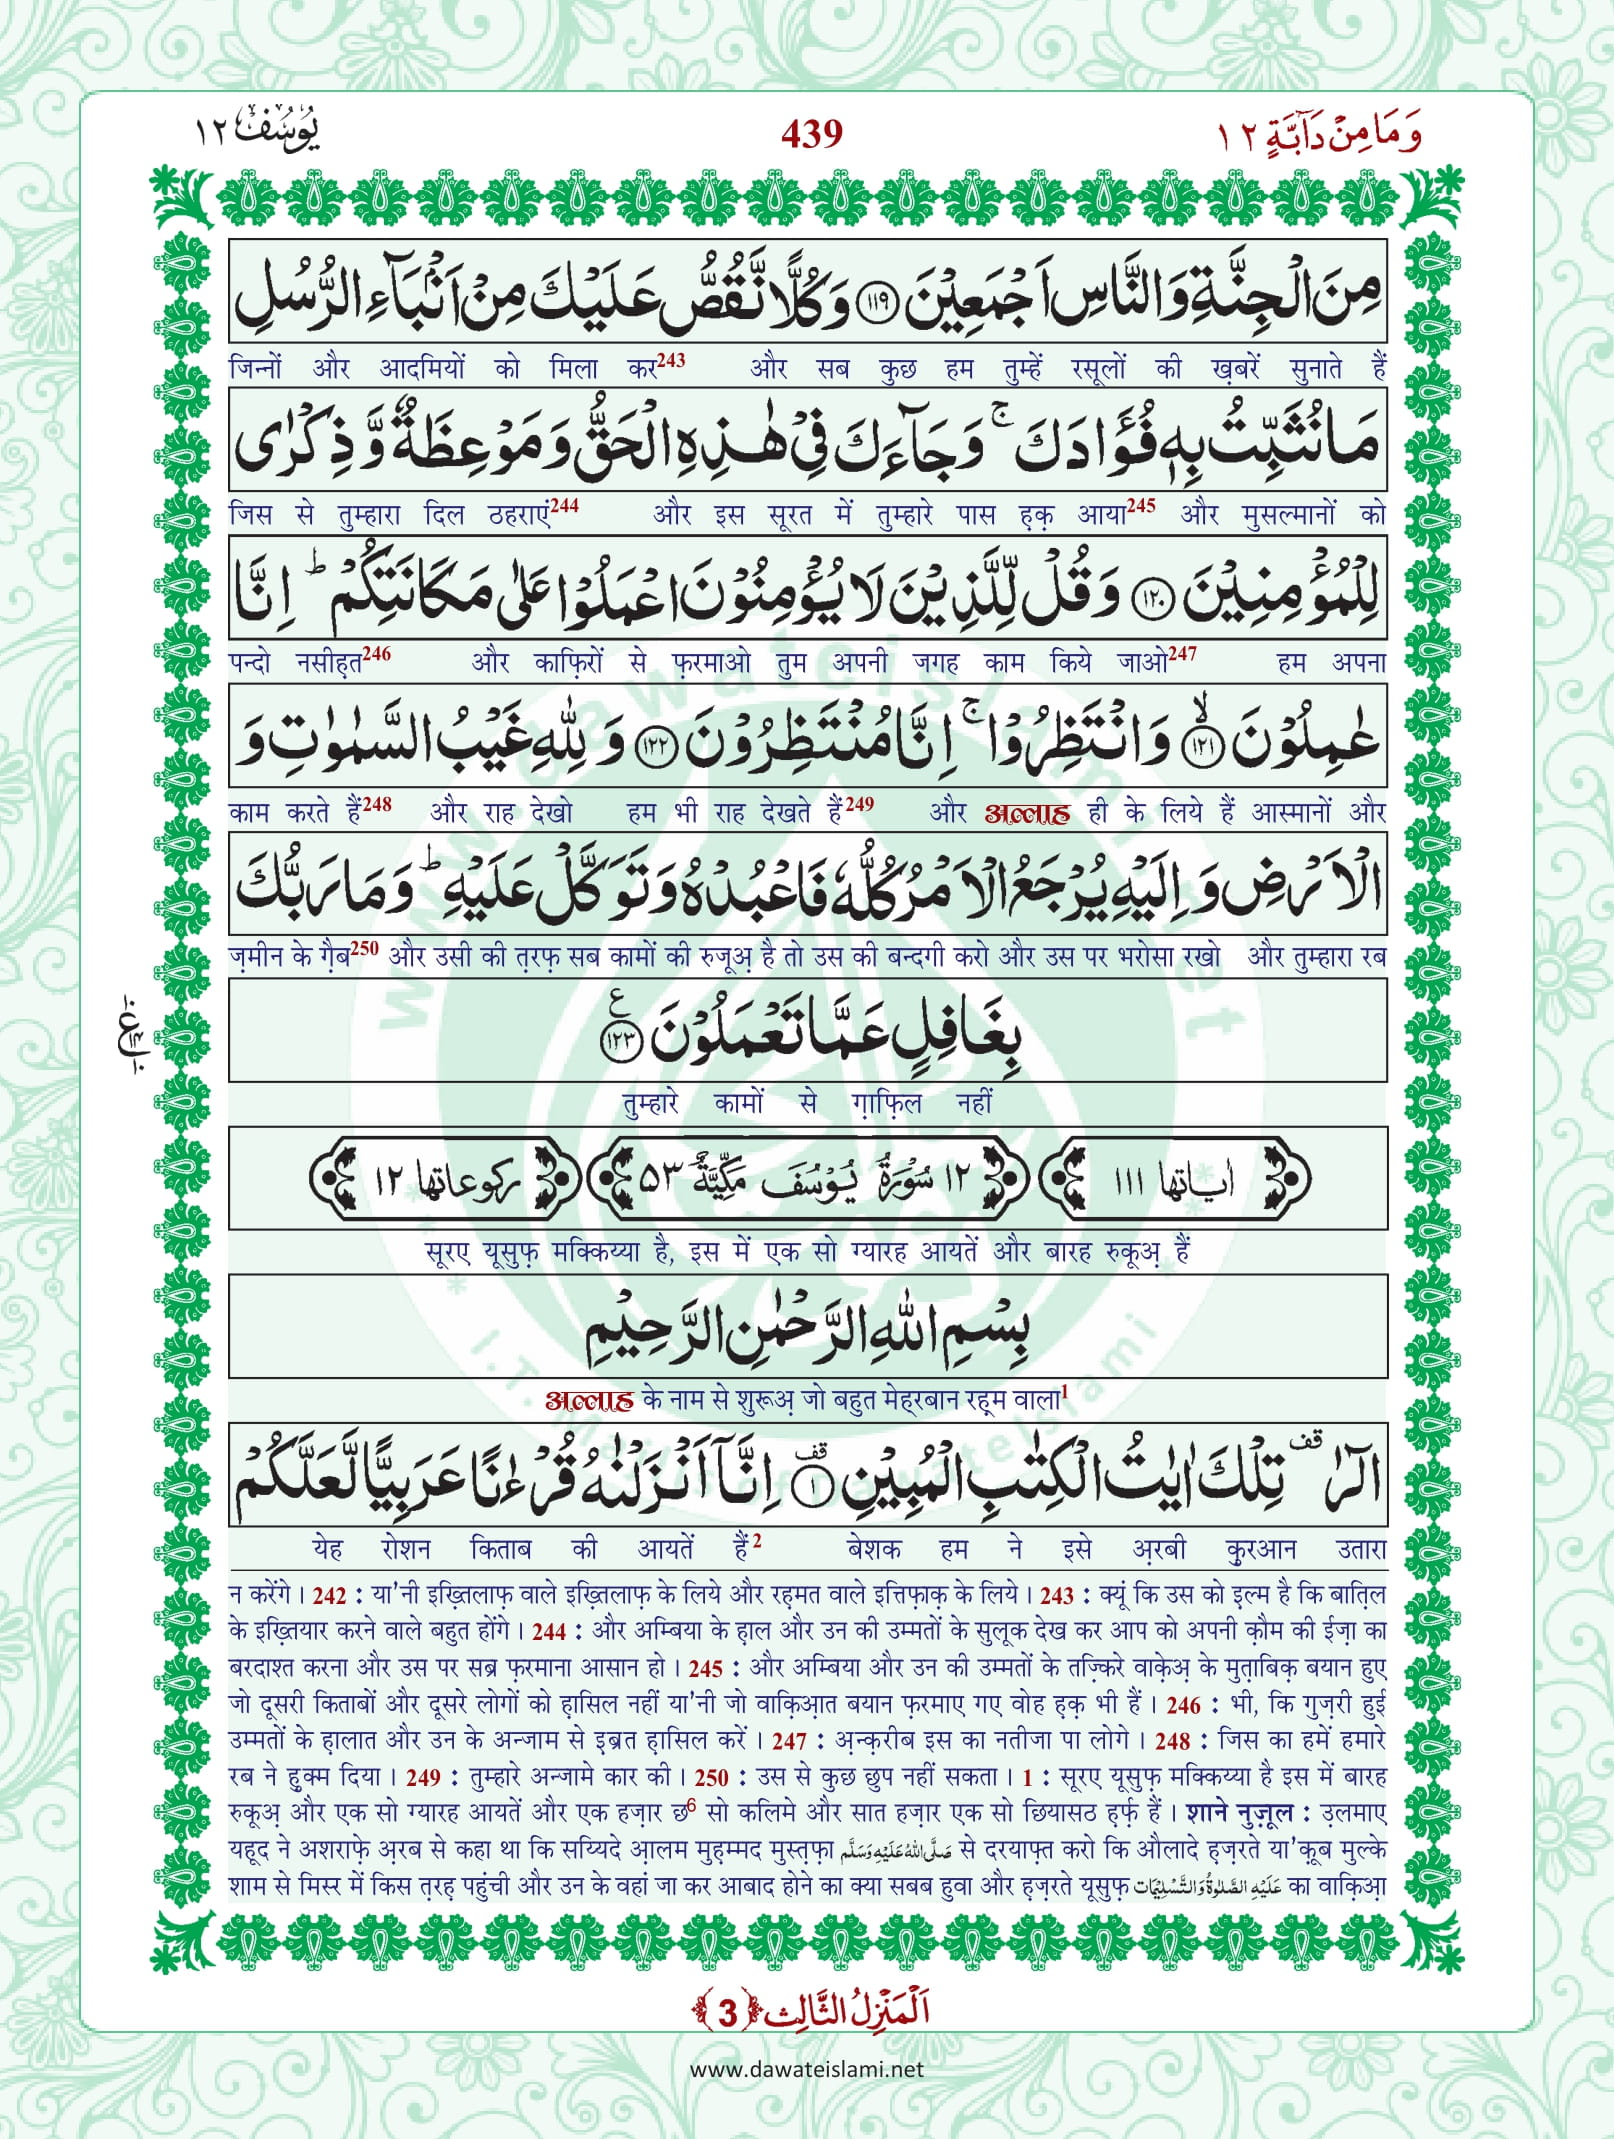 وَمَا مِنْ دَآبَّةٍ ١٢
439
يُوْسُف ١٢
مِنَ الْجِنَّةِ وَالنَّاسِ اَجْمَعِيْنَ ﴿۱۱۹﴾ وَكُلًّا نَّقُصُّ عَلَيْكَ مِنْ اَنْۢبَآءِ الرُّسُلِ
जिन्नों और आदमियों को मिला कर243 और सब कुछ हम तुम्हें रसूलों की ख़बरें सुनाते हैं
مَا نُثَبِّتُ بِهٖ فُؤَادَكَ ۚ وَجَآءَكَ فِيْ هٰذِهِ الْحَقُّ وَمَوْعِظَةٌ وَّذِكْرٰى
जिस से तुम्हारा दिल ठहराएं244 और इस सूरत में तुम्हारे पास ह़क़ आया245 और मुसल्मानों को
لِلْمُؤْمِنِيْنَ ﴿۱۲۰﴾ وَقُلْ لِّلَّذِيْنَ لَا يُؤْمِنُوْنَ اعْمَلُوْا عَلٰى مَكَانَتِكُمْ ؕ اِنَّا
पन्दो नसीह़त246 और काफ़िरों से फ़रमाओ तुम अपनी जगह काम किये जाओ247 हम अपना
عٰمِلُوْنَ ﴿۱۲۱﴾ۙ وَانْتَظِرُوْا ۚ اِنَّا مُنْتَظِرُوْنَ ﴿۱۲۲﴾ وَلِلّٰهِ غَيْبُ السَّمٰوٰتِ وَ
काम करते हैं248 और राह देखो हम भी राह देखते हैं249 और अल्लाह ही के लिये हैं आस्मानों और
الْاَرْضِ وَاِلَيْهِ يُرْجَعُ الْاَمْرُ كُلُّهٗ فَاعْبُدْهُ وَتَوَكَّلْ عَلَيْهِ ؕ وَمَا رَبُّكَ
ज़मीन के ग़ैब250 और उसी की त़रफ़ सब कामों की रुजूअ़ है तो उस की बन्दगी करो और उस पर भरोसा रखो और तुम्हारा रब
بِغَافِلٍ عَمَّا تَعْمَلُوْنَ ﴿۱۲۳﴾ ع
तुम्हारे कामों से ग़ाफ़िल नहीं
اٰياتها ١١١ ١٢ سُوْرَةُ يُوْسُفَ مَكِّيَّةٌ ٥٣ ركوعاتها ١٢
सूरए यूसुफ़ मक्किय्या है, इस में एक सो ग्यारह आयतें और बारह रुकूअ़ हैं
بِسْمِ اللّٰهِ الرَّحْمٰنِ الرَّحِيْمِ
अल्लाह के नाम से शुरूअ़ जो बहुत मेह्‌रबान रह़्म वाला1
الٓرٰ قف تِلْكَ اٰيٰتُ الْكِتٰبِ الْمُبِيْنِ ﴿۱﴾ قف اِنَّاۤ اَنْزَلْنٰهُ قُرْءٰنًا عَرَبِيًّا لَّعَلَّكُمْ
येह रोशन किताब की आयतें हैं2 बेशक हम ने इसे अ़रबी क़ुरआन उतारा
न करेंगे। 242 : या'नी इख़्तिलाफ़ वाले इख़्तिलाफ़ के लिये और रह़मत वाले इत्तिफ़ाक़ के लिये। 243 : क्यूं कि उस को इ़ल्म है कि बात़िल
के इख़्तियार करने वाले बहुत होंगे। 244 : और अम्बिया के ह़ाल और उन की उम्मतों के सुलूक देख कर आप को अपनी क़ौम की ईज़ा का
बरदाश्त करना और उस पर सब्र फ़रमाना आसान हो। 245 : और अम्बिया और उन की उम्मतों के तज़्किरे वाके़अ़ के मुत़ाबिक़ बयान हुए
जो दूसरी किताबों और दूसरे लोगों को ह़ासिल नहीं या'नी जो वाक़िआ़त बयान फ़रमाए गए वोह ह़क़ भी हैं। 246 : भी, कि गुज़री हुई
उम्मतों के ह़ालात और उन के अन्जाम से इ़ब्रत ह़ासिल करें। 247 : अ़न्क़रीब इस का नतीजा पा लोगे। 248 : जिस का हमें हमारे
रब ने ह़ुक्म दिया। 249 : तुम्हारे अन्जामे कार की। 250 : उस से कुछ छुप नहीं सकता। 1 : सूरए यूसुफ़ मक्किय्या है इस में बारह
रुकूअ़ और एक सो ग्यारह आयतें और एक हज़ार छ6 सो कलिमे और सात हज़ार एक सो छियासठ ह़र्फ़ हैं। शाने नुज़ूल : उ़लमाए
यहूद ने अशराफ़े अ़रब से कहा था कि सय्यिदे आ़लम मुह़म्मद मुस्त़फ़ा صَلَّى اللهُ عَلَيْهِ وَسَلَّم से दरयाफ़्त करो कि औलादे ह़ज़रते या'क़ूब मुल्के
शाम से मिस्र में किस त़रह़ पहुंची और उन के वहां जा कर आबाद होने का क्या सबब हुवा और ह़ज़रते यूसुफ़ عَلَيْهِ الصَّلٰوةُ وَالتَّسْلِيْمَات का वाक़िआ़
اَلْمَنْزِلُ الثَّالِث ﴿3﴾
www.dawateislami.net